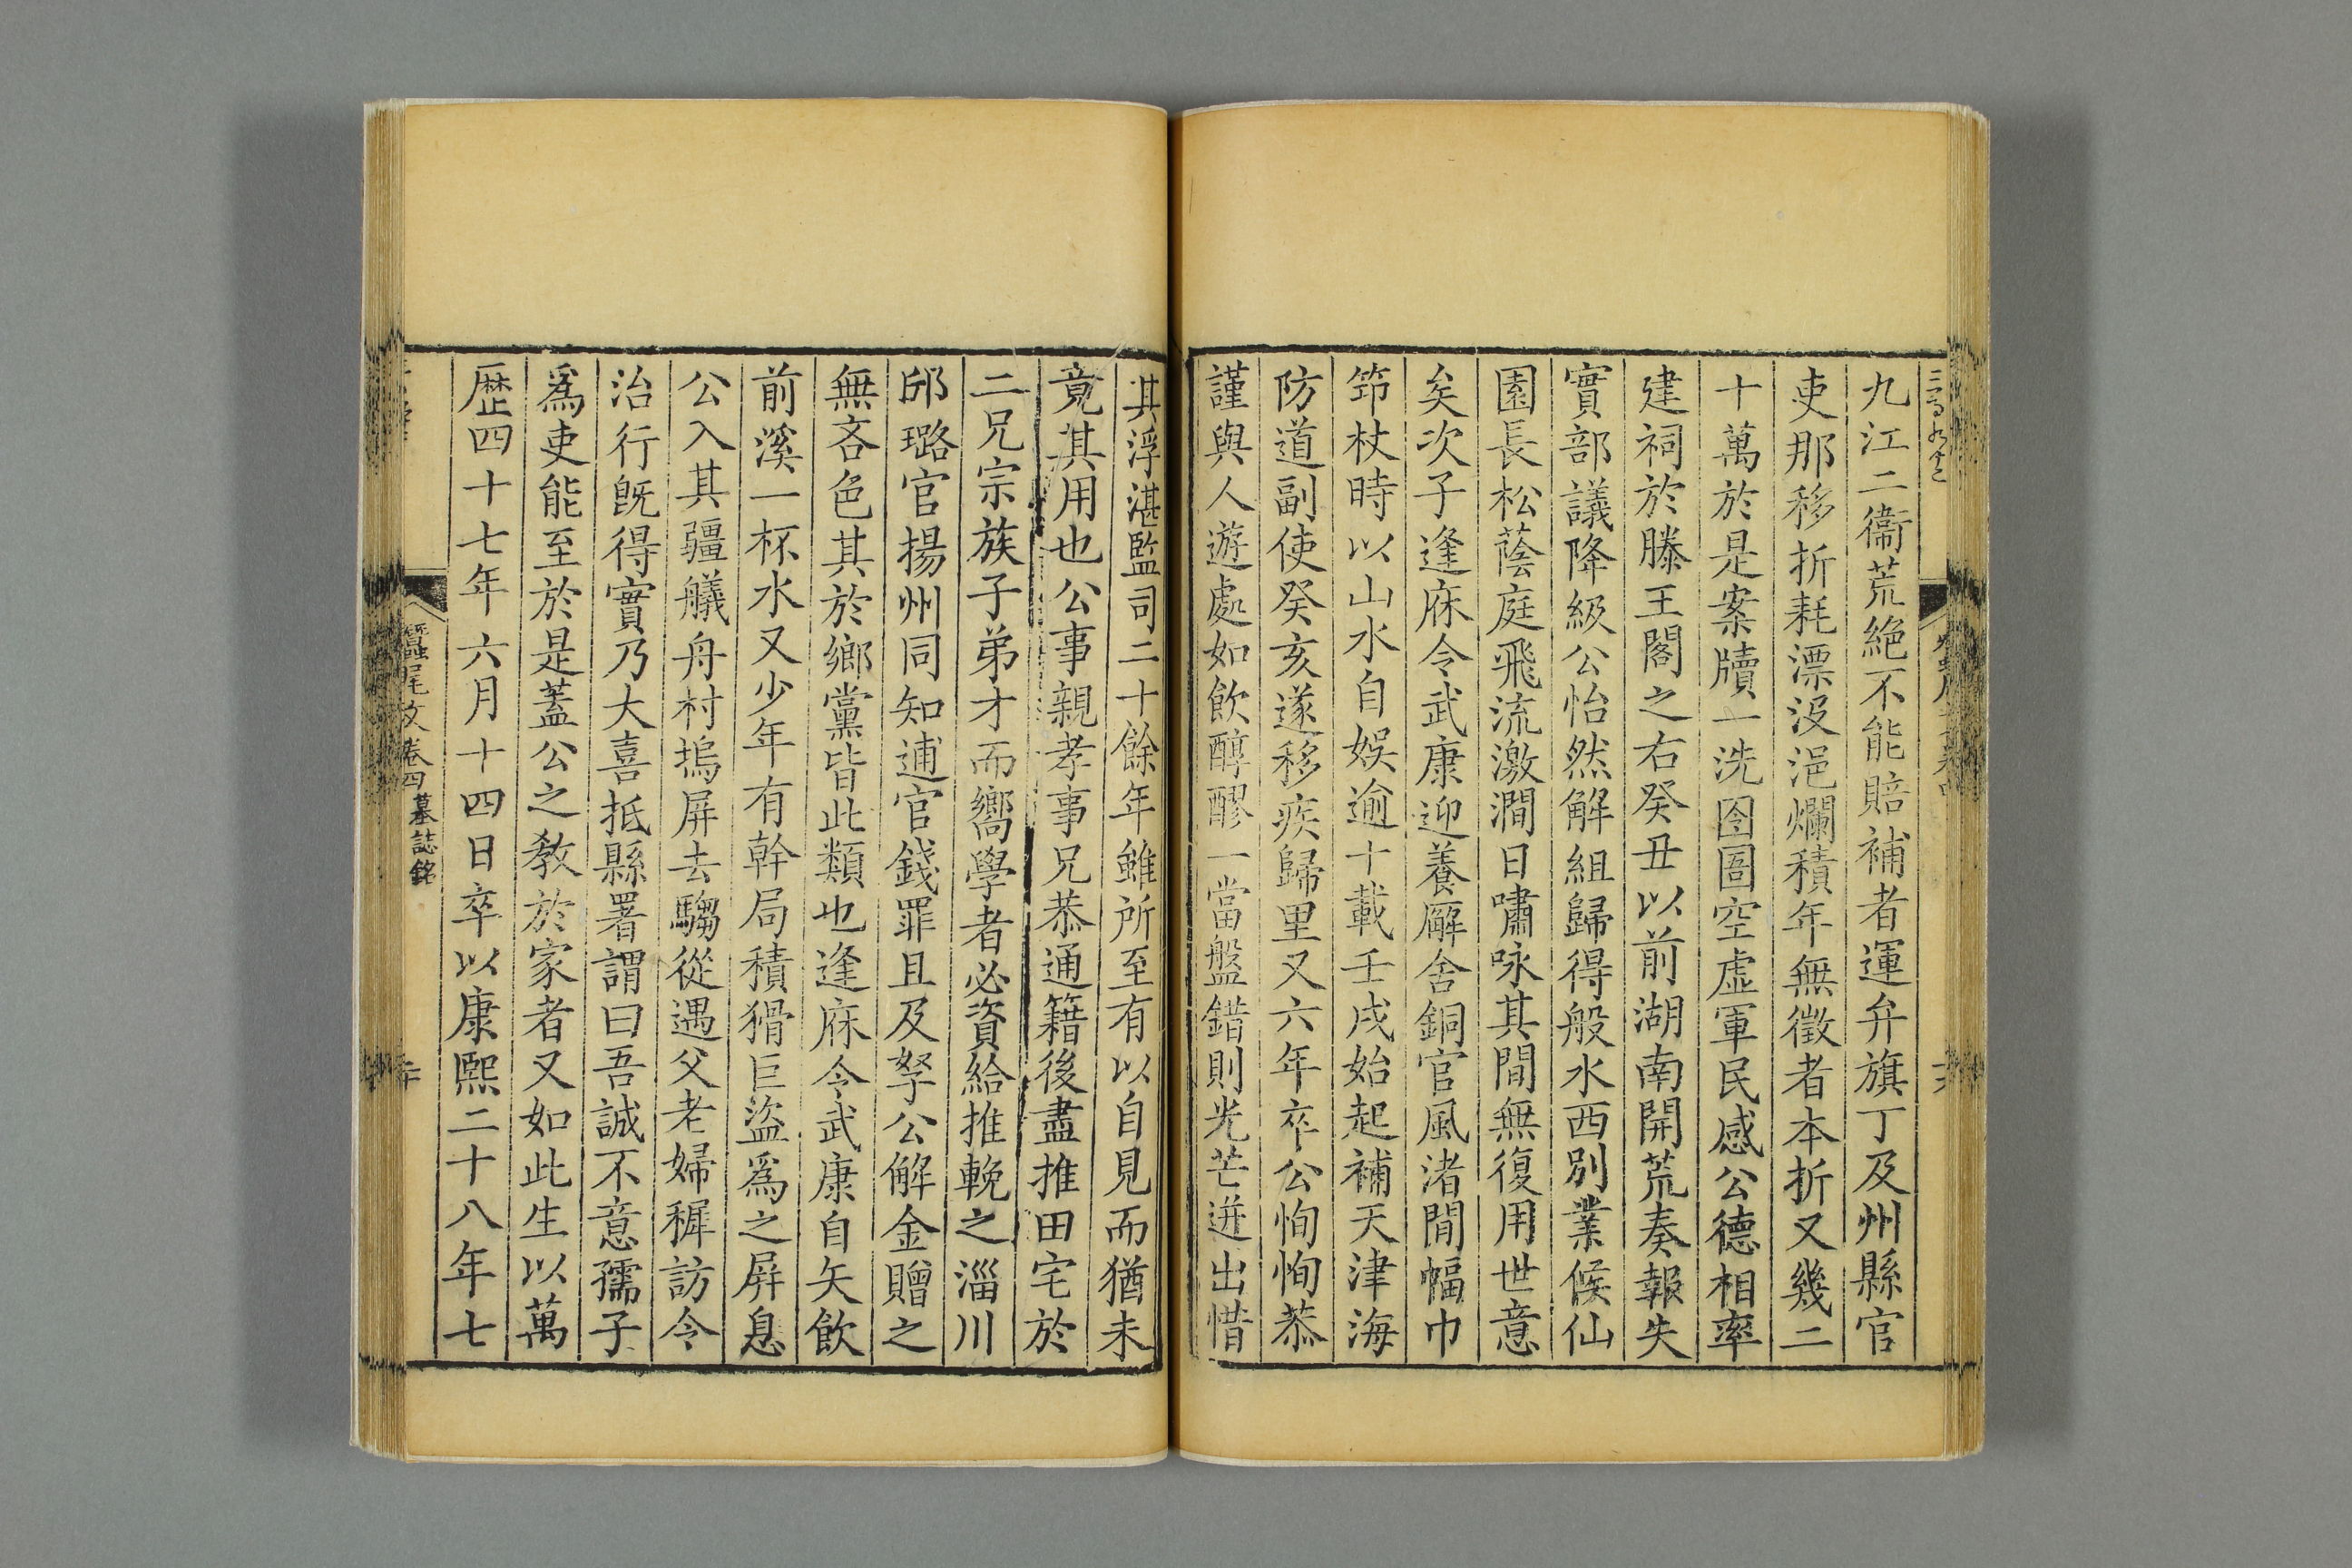 九江二衞荒絶不能賠補者運弁旗丁及州縣官
吏那移折耗漂没浥爛積年無徵者本折又幾二
十萬於是案牘一洗囹圄空虛軍民感公德相率
建祠於滕王閣之右癸丑以前湖南開荒奏報失
實部議降級公怡然解組歸得般水西別業候仙
園長松蔭庭飛流激澗日嘯咏其間無復用世意
矣次子逢庥令武康迎養廨舍銅官風渚閒幅巾
笻杖時以山水自娱逾十載壬戌始起補天津海
防道副使癸亥遂移疾歸里又六年卒公恂恂恭
謹與人遊處如飲醇醪一當盤錯則光芒迸出惜
其浮湛監司二十餘年雖所至有以自見而猶未
竟其用也公事親孝事兄恭通籍後盡推田宅於
二兄宗族子弟才而嚮學者必資給推輓之淄川
邱璐官揚州同知逋官錢罪且及孥公解金贈之
無吝色其於鄉黨皆此類也逢庥令武康自矢飲
前溪一杯水又少年有幹局積猾巨盜爲之屏息
公入其疆艤舟村塢屏去騶從遇父老婦穉訪令
治行旣得實乃大喜抵縣署謂曰吾誠不意孺子
爲吏能至於是蓋公之教於家者又如此生以萬
歷四十七年六月十四日卒以康熙二十八年七
蠶尾文卷四 墓誌銘